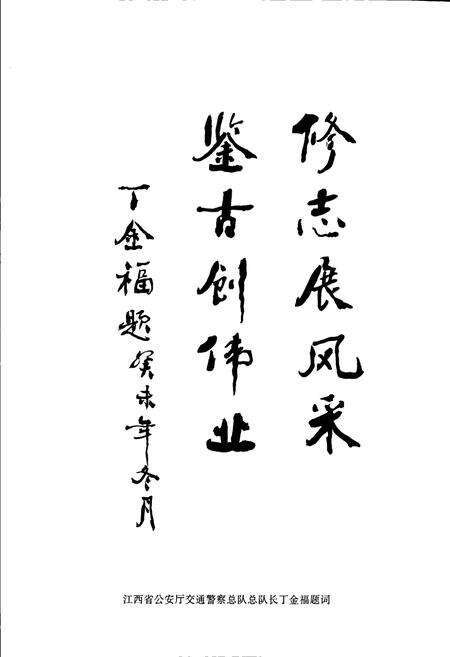 修志展风采
鉴古创伟业
丁金福题癸未年冬月
江西省公安厅交通警察总队总队长丁金福题词